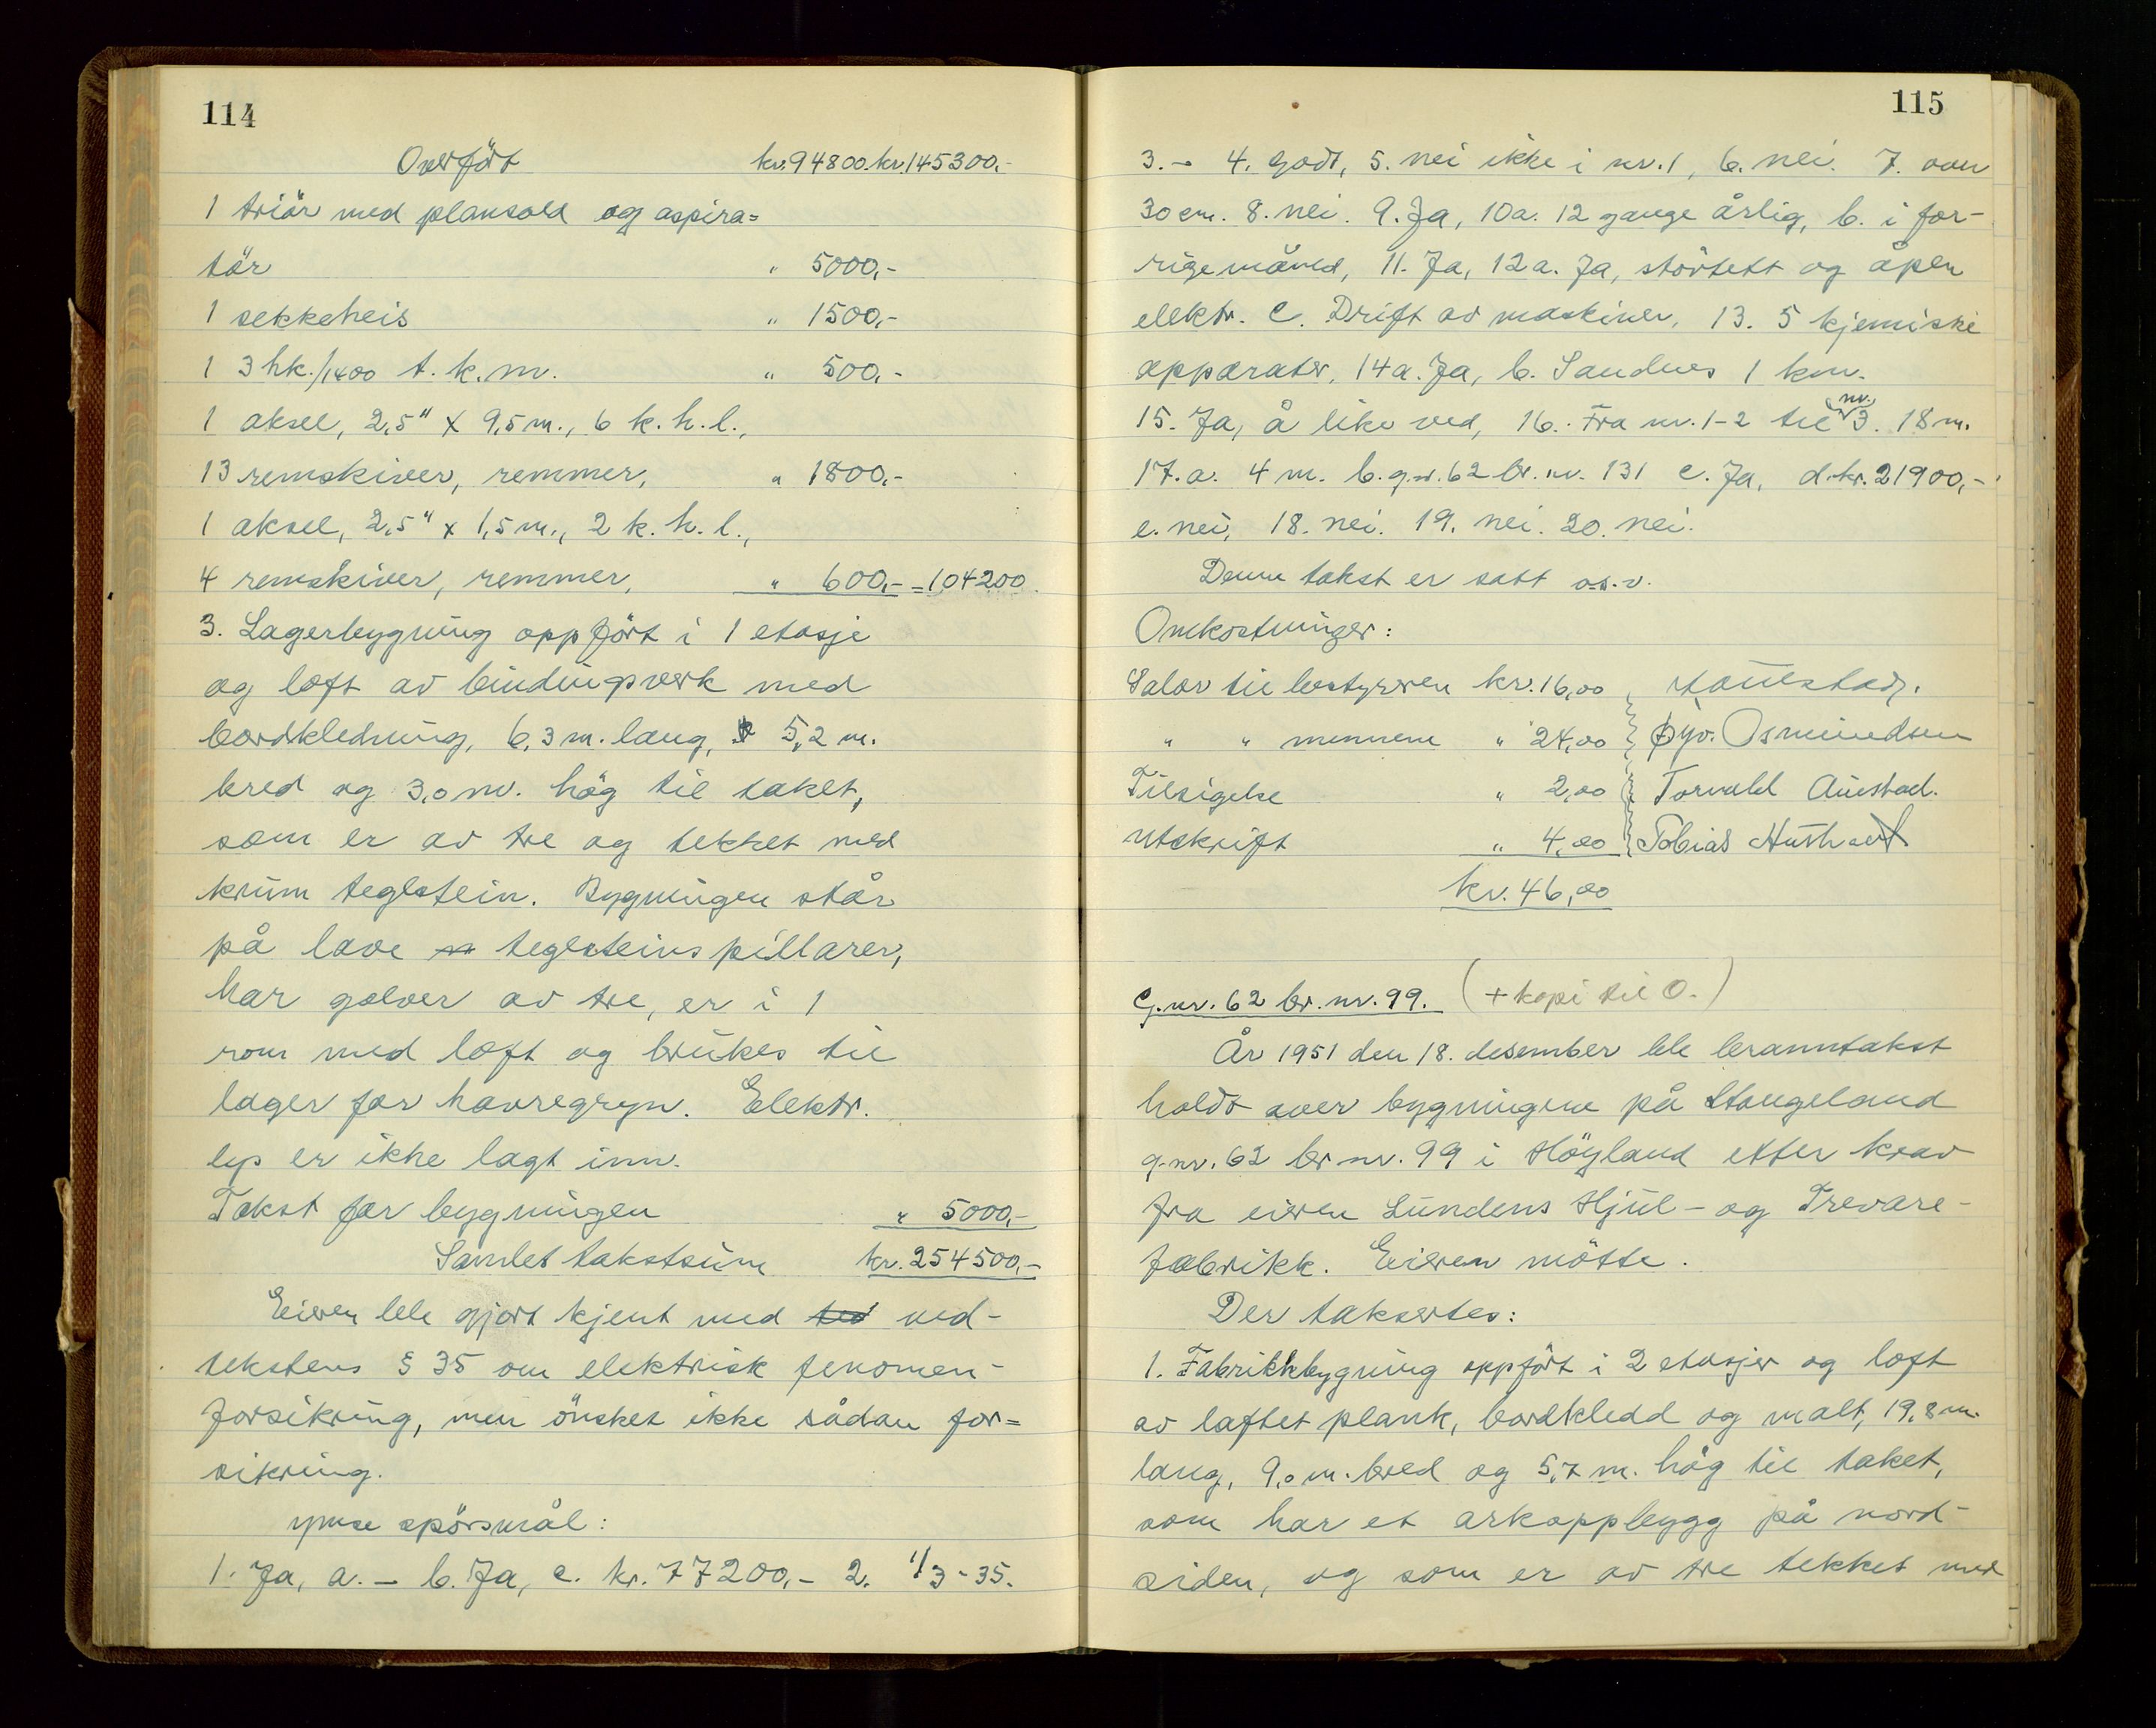 114
Overfört kr. 94800. kr. 145300.-
1 triör med plansold og aspira=
tör " 5000,-
1 sekkeheis " 1500,-
1 3 hk./1400 t. k.m. " 500,-
1 aksel, 2,5" x 9,5 m., 6 k. h. l.,
13 remskiver, remmer, " 1800,-
1 aksel, 2,5" x 1,5 m., 2 k. h. l.,
4 remskiver, remmer, " 600,- = 104200
3. Lagerbygning oppfört i 1 etasje
og loft av bindingsverk med
bordkledning, 6,3 m. lang, 5,2 m.
bred og 3,0 m. hög til taket,
som er av tre og tekket med
krum teglstein. Bygningen står
på lave teglsteinspillarer,
har golver av tre, er i 1
rom med loft og brukes til
lager for havregryn. Elektr.
lys er ikke lagt inn.
Takst for bygningen " 5000,-
Samlet takstsum kr. 254500,-
Eieren ble gjort kjent med ved-
tekstens § 35 om elektrisk fenomen-
forsikring, men önsket ikke sådan for=
sikring.
Ymse spörsmål:
1. Ja, a. - b. Ja, c. kr. 77200,- 2. 1/3-35.
115
3. - 4. godt, 5. nei ikke i nr. 1, 6. nei. 7. over
30 cm. 8. nei. 9. Ja, 10a. 12 gange årlig, b. i for-
rige måned, 11. Ja, 12a. Ja, stövtett og åpen
elektr. c. Drift av maskiner, 13. 5 kjemiske
apparater, 14a. Ja, b. Sandnes 1 km.
15. Ja, å like ved, 16. Fra nr. 1-2 til nr. 3. 18 m.
17. a. 4 m. b. g.nr. 62 br. nr. 131 c. Ja, d. kr. 21900,-
e. nei, 18. nei. 19. nei. 20. nei.
Denne takst er satt o.s.v.
Omkostninger:
Salar til bestyreren kr. 16,00
" " mennene " 24,00 Øyv. Osmundsen
Tilsigelse " 2,00 Torvald Austad.
Utskrift " 4,00 Tobias
kr. 46,00
G.nr. 62 br. nr. 99. (+ kopi til O.)
År 1951 den 18. desember ble branntakst
holdt over bygningene på Stangeland
g.nr. 62 br. nr. 99 i Höyland etter krav
fra eieren Lundens Hjul- og Trevare-
fabrikk. Eieren mötte.
Der taksertes:
1. Fabrikkbygning oppfört i 2 etasjer og loft
av laftet plank, bordkledd og malt, 19,8 m.
lang, 9,0 m. bred og 5,7 m. hög til taket,
som har et arkoppbygg på nord-
siden, og som er av tre tekket med